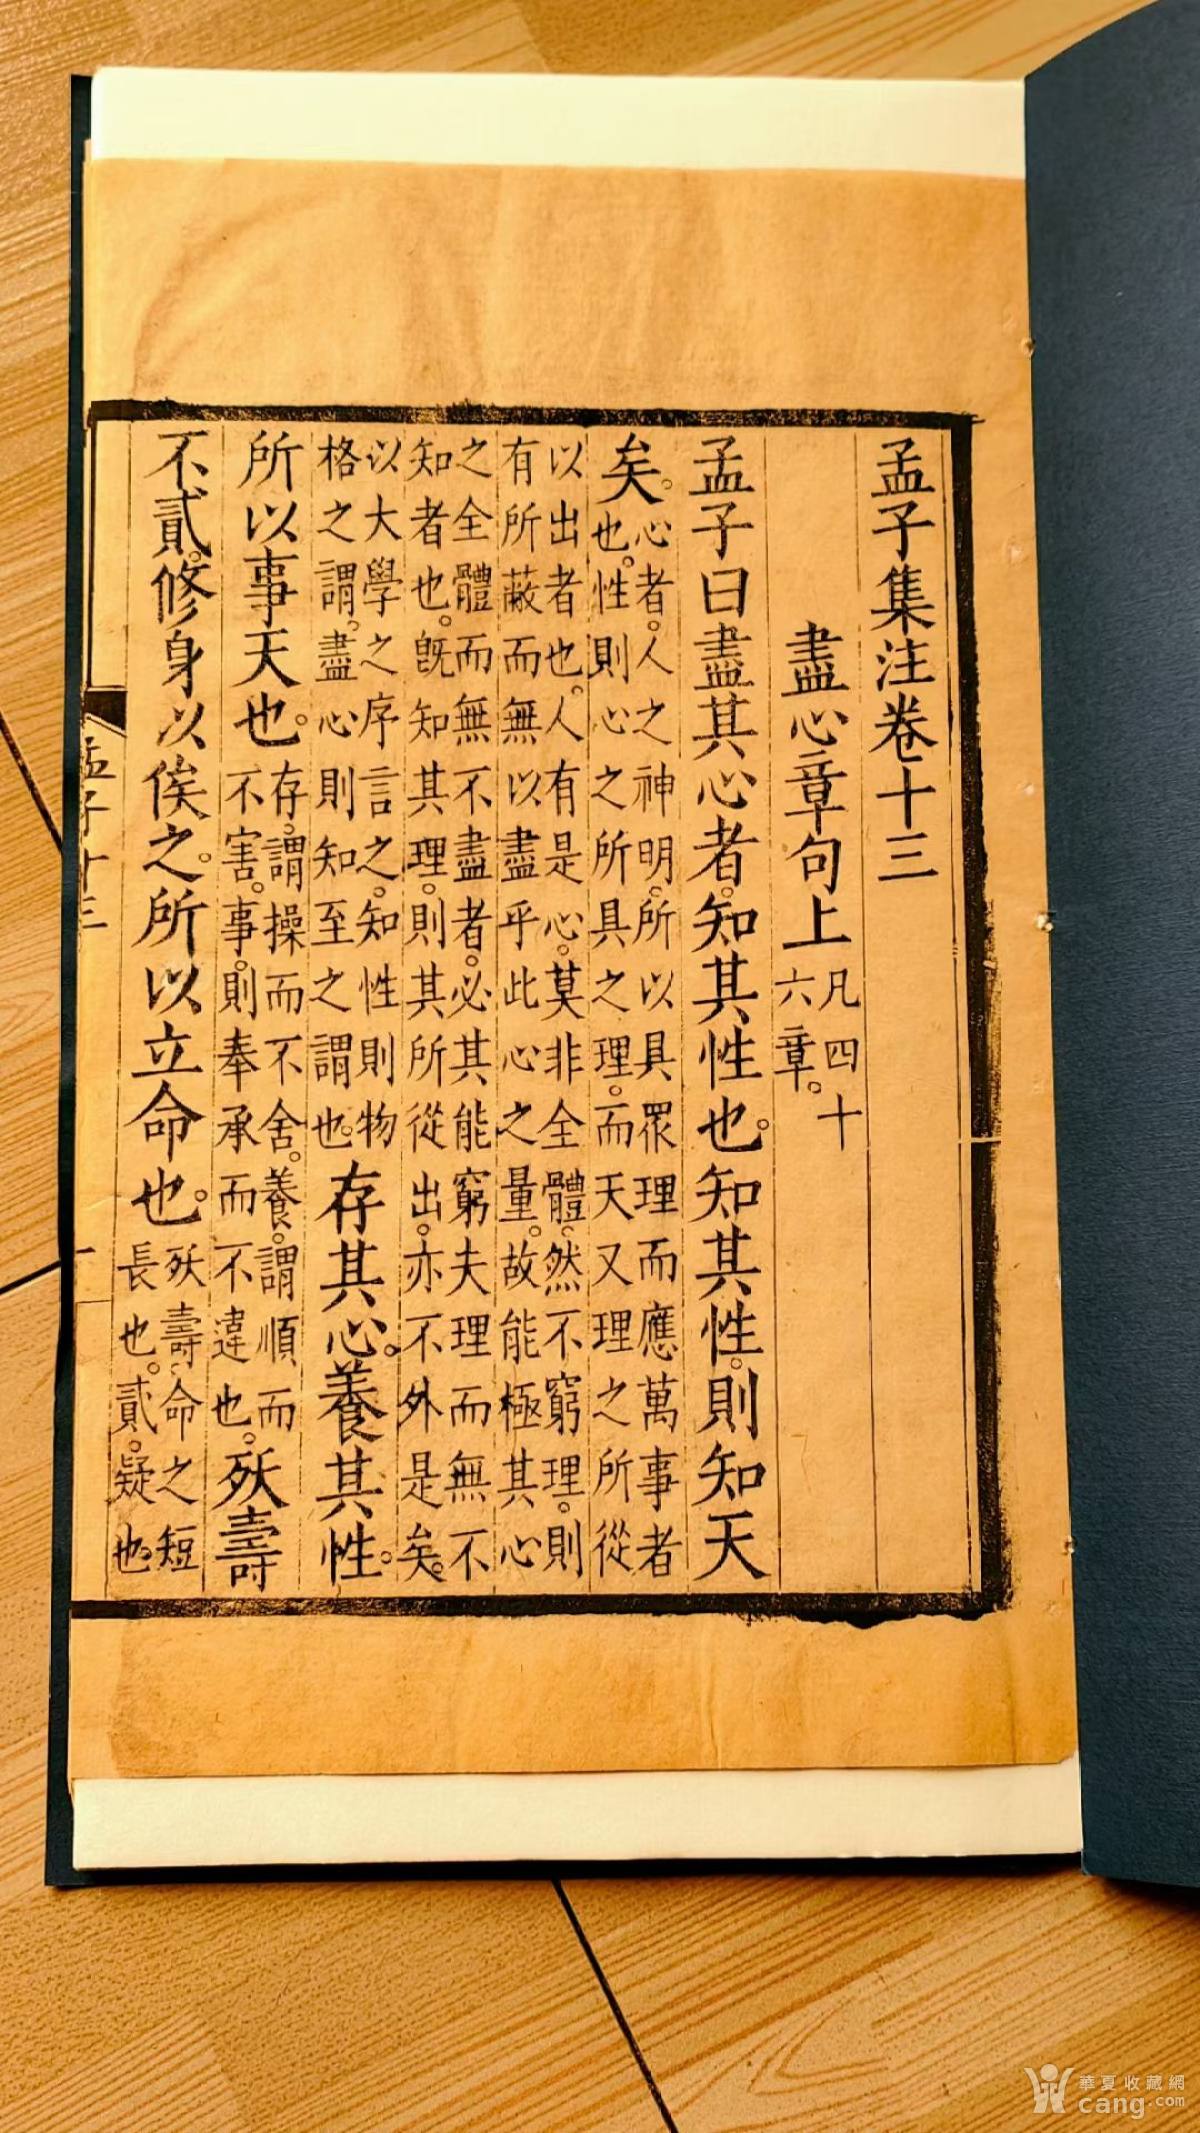 孟子集注卷十三
盡心章句上凡四十六章。
孟子曰盡其心者。知其性也。知其性。則知天
矣。心者。人之神明。所以具眾理而應萬事者也。性則心之所具之理。而天又理之所從
以出者也。人有是心。莫非全體。然不窮理。則有所蔽而無以盡乎此心之量。故能極其心
之全體而無不盡者。必其能窮夫理而無不知者也。旣知其理。則其所從出。亦不外是矣。
以大學之序言之。知性則物格之謂。盡心則知至之謂也。存其心。養其性。
所以事天也。存。謂操而不舍。養。謂順而不害。事。則奉承而不違也。殀壽
不貳。修身以俟之。所以立命也。殀壽。命之短長也。貳。疑也。
孟子十三
一
華夏收藏網
cang.com